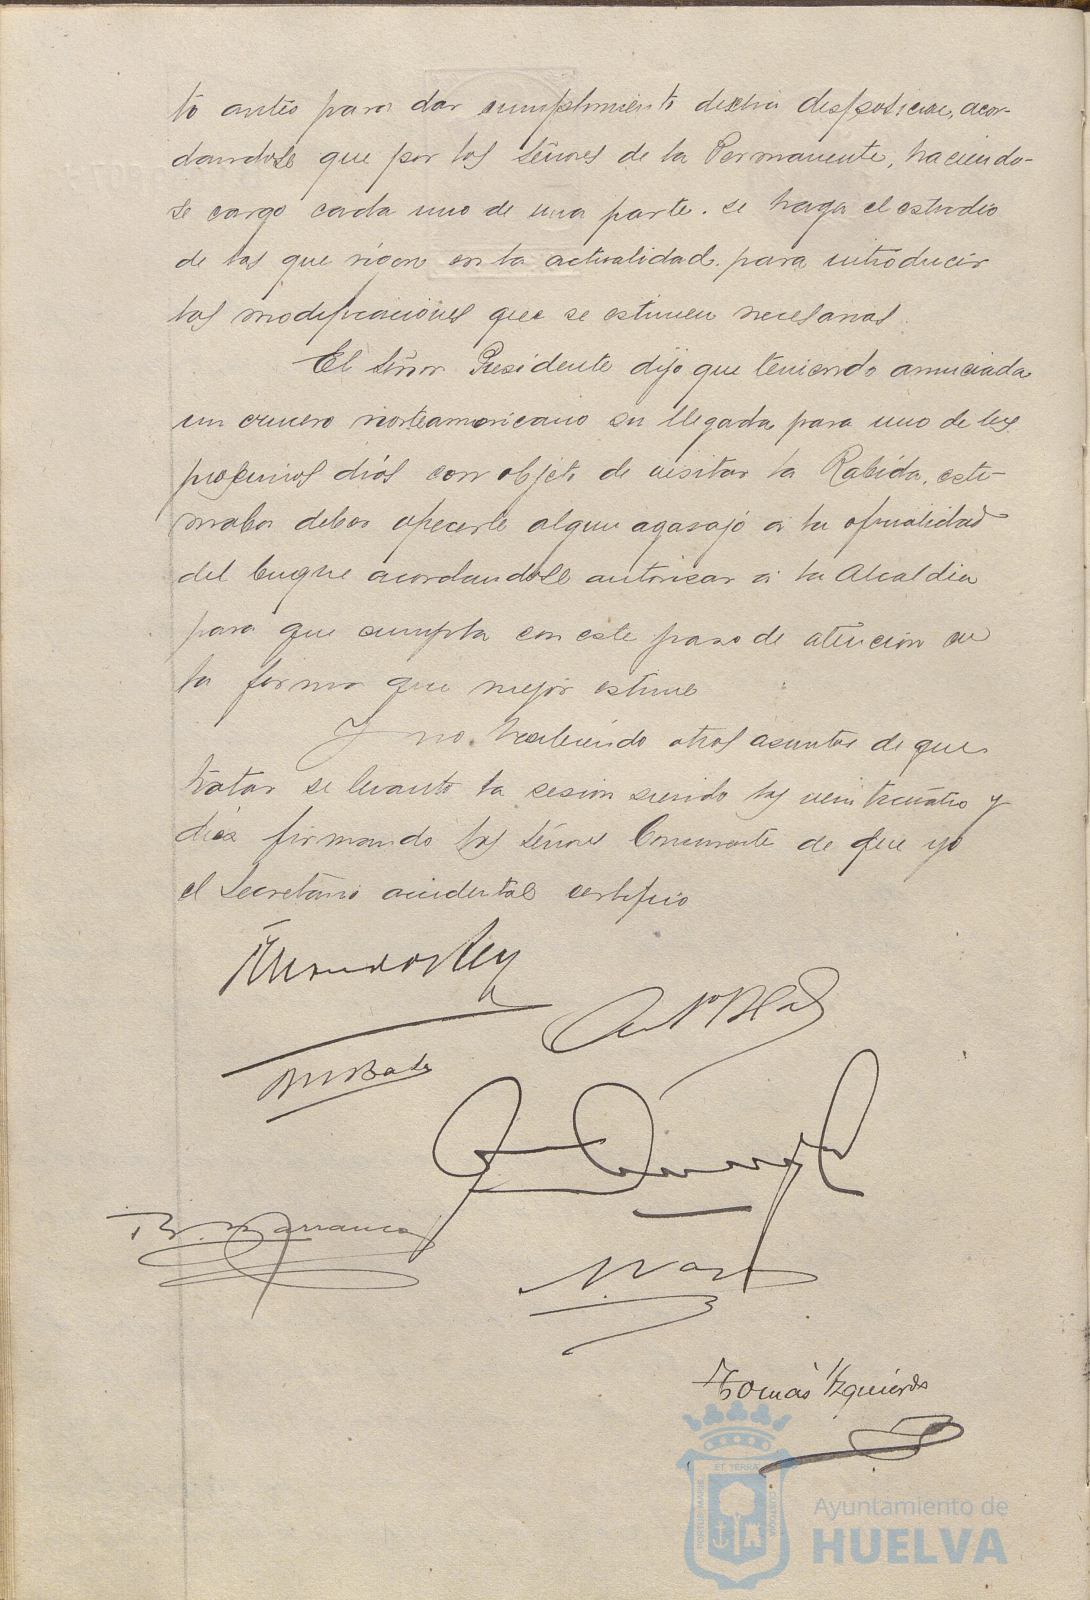 to antes para dar cumplimiento dicha disposicion, acor-
dandose que por los Señores de la Permanente, haciendo-
se cargo cada uno de una parte. se haga el estudio
de las que rigen en la actualidad. para introducir
las modificaciones que se estimen necesarias.
El Señor Presidente dijo que teniendo anunciada
un crucero norteamericano su llegada para uno de los
proximos dias con objeto de visitar la Rabida, esti-
maba deber ofrecerle algun agasajo a la oficialidad
del buque acordandose autorizar a la Alcaldia
para que cumpla con este paso de atencion en
la forma que mejor estime
Y no habiendo otros asuntos de que
tratar se levanto la sesion siendo las veinticuatro y
diez firmando los Señores Concurrente de que yo
el Secretario accidental certifico
B. Barranca
Tomás Izquierdo
ET TERRA
PORTUS MARIS
CUSTODIA
Ayuntamiento de
HUELVA